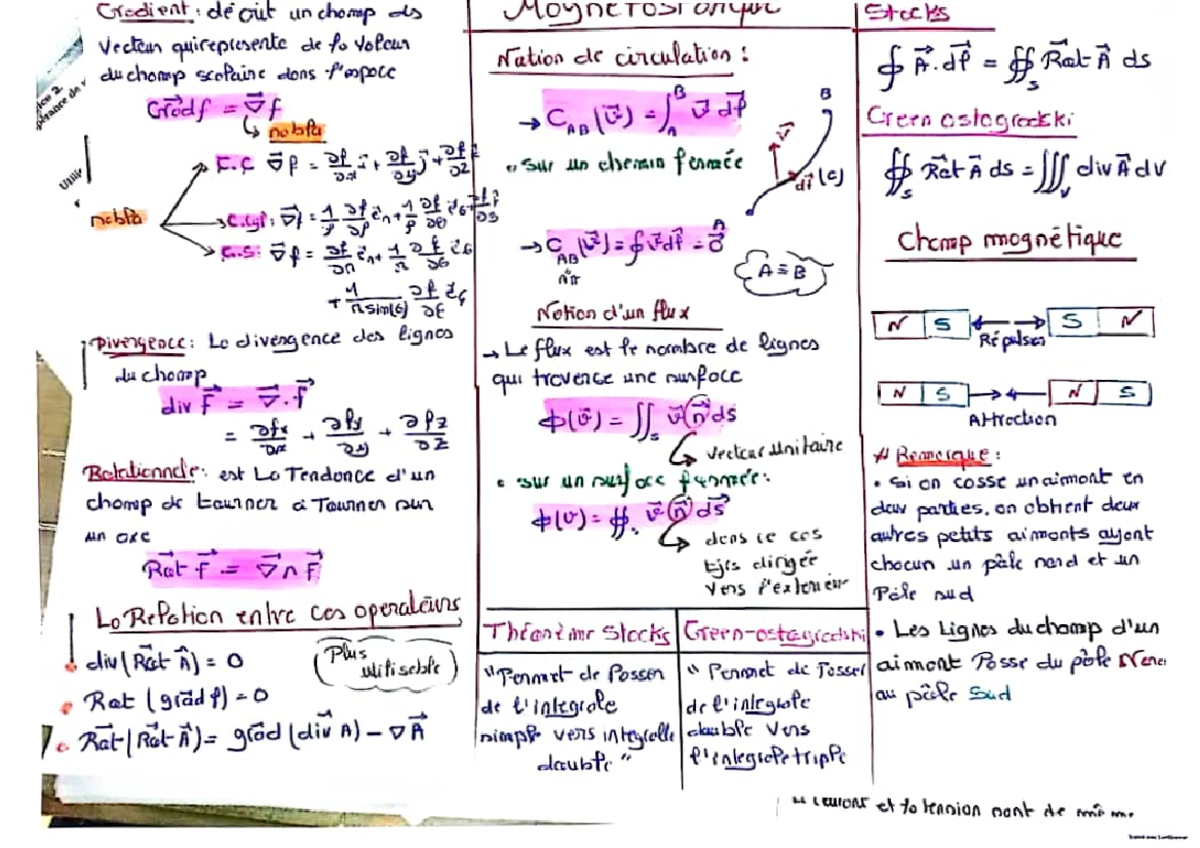 Gradient: décrit un champ ds
Vecteur qui represente de la Valeur
du champ scalaire dans l'espace
Grad f = ∇f
nabla
C.C ∇f = ∂f/∂x i + ∂f/∂y j + ∂f/∂z
nabla
C.cyl: ∇f = 1 ∂f/∂ρ e_r + 1/ρ ∂f/∂θ e_θ + ∂f/∂z
C.S: ∇f = ∂f/∂r e_r + 1/r ∂f/∂θ e_θ
+ 1/(r sin(θ)) ∂f/∂φ e_φ
Divergence: La divergence des lignes
du champ
div F = ∇.F
= ∂fx/∂x + ∂fy/∂y + ∂fz/∂z
Rotationnele: est La Tendance d'un
champ de tourner à Tourner sur
un axe
Rot f = ∇∧F
La Relation entre ces operateurs
div(Rot A) = 0
(Plus utilisable)
Rot (grad f) = 0
Rot(Rot A) = grad (div A) - ∇A
Magnétostatique
Notion de circulation:
→ C_AB(v) = ∫_A^B v dl
• Sur un chemin fermée
B
v
dl (c)
→ C_AB(v) = ∮ v dl = 0
A ≡ B
Notion d'un flux
→ Le flux est le nombre de lignes
qui traverse une surface
ϕ(v) = ∬_s v n ds
vecteur unitaire
• sur un surface fermée:
ϕ(v) = ∯ v n ds
dans ce cas
tjrs dirigée
vers l'exterieur
Théorème Stocks
"Permet de Passer
de l'integrale
simple vers integralle
double"
Green-ostogradski
" Permet de Passer
de l'integrale
double vers
l'integrale triple
Stocks
∮ A.dl = ∯_s Rot A ds
Green ostogradski
∯_s Rot A ds = ∭_V div A dv
Champ magnétique
N S S N
Répulsion
N S N S
Attraction
# Remarque:
• Si on casse un aimant en
deux parties, on obtient deux
autres petits aimants ayant
chacun un pôle nord et un
Pôle sud
• Les Lignes du champ d'un
aimant Passe du pôle
au pôle Sud
et la tension sont de mêm